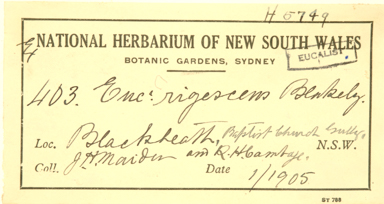 H 5749
NATIONAL HERBARIUM OF NEW SOUTH WALES
EUCALIST
BOTANIC GARDENS, SYDNEY
403. Euc. rigescens Blakely.
Loc. Blackheath, Baptist Church Gully. N.S.W.
Coll. J.H. Maiden and R.H. Cambage. Date 1/1905
SY 768